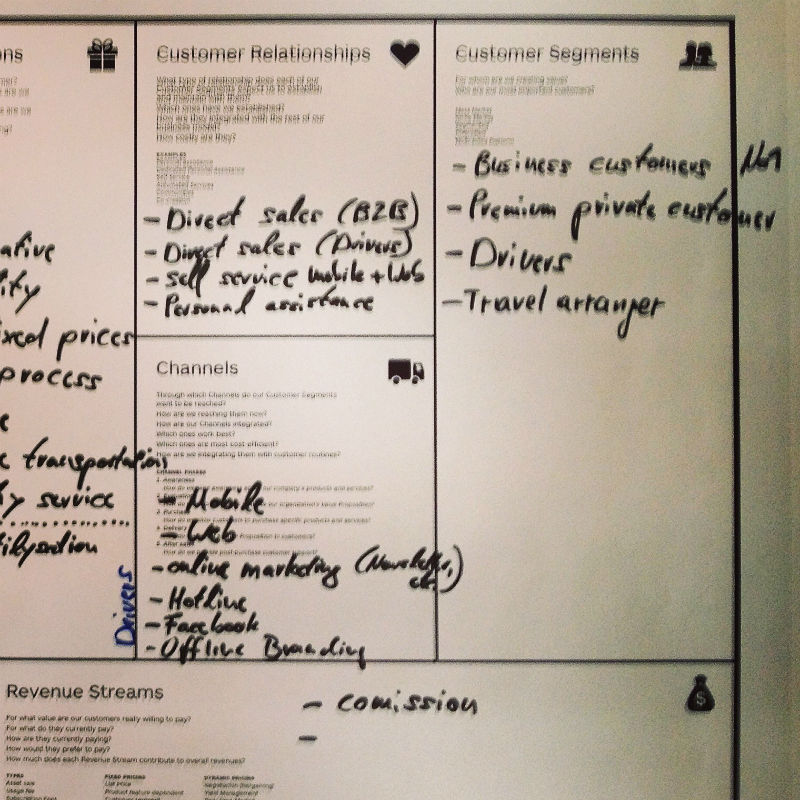 ons
Customer Relationships
What type of relationship does each of our
Customer Segments expect us to establish
and maintain with them?
Which ones have we established?
How are they integrated with the rest of our
business model?
How costly are they?
EXAMPLES
- Direct sales (B2B)
- Direct sales (Drivers)
- Self service mobile + Web
- Personal assistance
Customer Segments
For whom are we creating value?
Who are our most important customers?
- Business customers
- Premium private customer
- Drivers
- Travel arranger
ative
ity
ixed prices
process
transportation
service
Drivers
Channels
Through which Channels do our Customer Segments
want to be reached?
How are we reaching them now?
How are our Channels integrated?
Which ones work best?
Which ones are most cost-efficient?
How are we integrating them with customer routines?
CHANNEL PHASES
1. Awareness
- Mobile
- Web
- online marketing (Newsletter, etc.)
- Hotline
- Facebook
- Offline Branding
Revenue Streams
For what value are our customers really willing to pay?
For what do they currently pay?
How are they currently paying?
How would they prefer to pay?
How much does each Revenue Stream contribute to overall revenues?
TYPES
Asset sale
Usage fee
Subscription Fees
FIXED PRICING
List Price
Product feature dependent
Customer segment
DYNAMIC PRICING
Negotiation (bargaining)
Yield Management
- comission
-
$